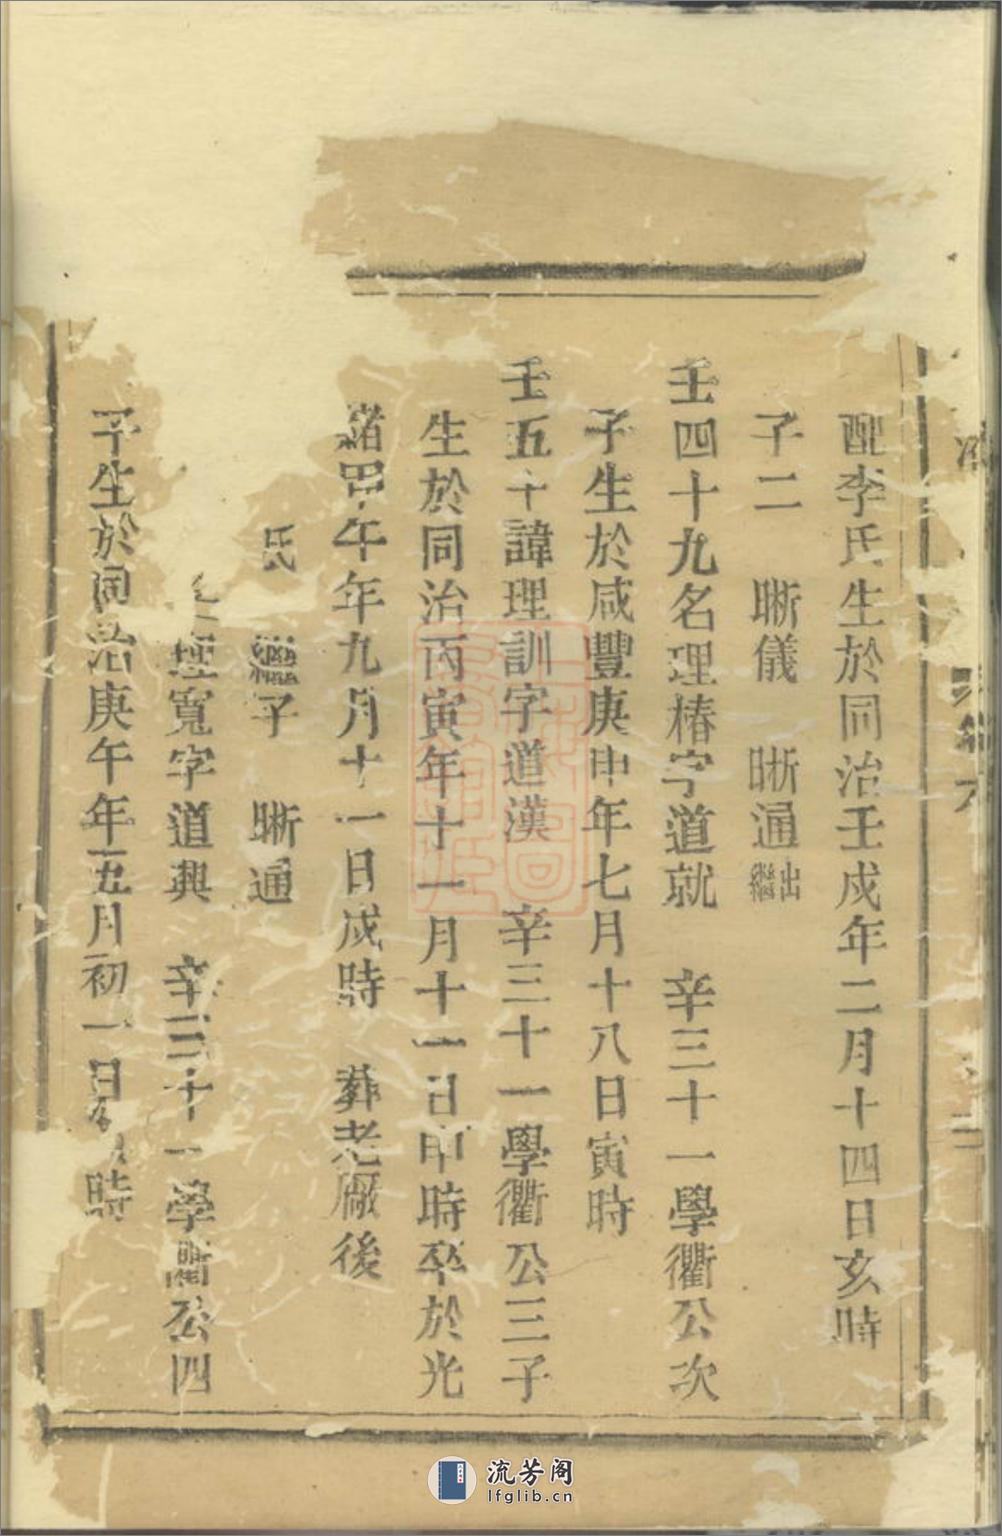 配李氏生於同治壬戌年二月十四日亥時
子二　晰儀　晰通出繼
壬四十九名理椿字道就　辛三十一學衢公次
子生於咸豐庚申年七月十八日寅時
壬五十諱理訓字道漢　辛三十一學衢公三子
生於同治丙寅年十一月十一日申時卒於光
緒甲午年九月十一日戌時　葬老廠後
氏　繼子　晰通
理寬字道興　辛三十一學衢公四
子生於同治庚午年五月初一日時
流芳阁
lfglib.cn